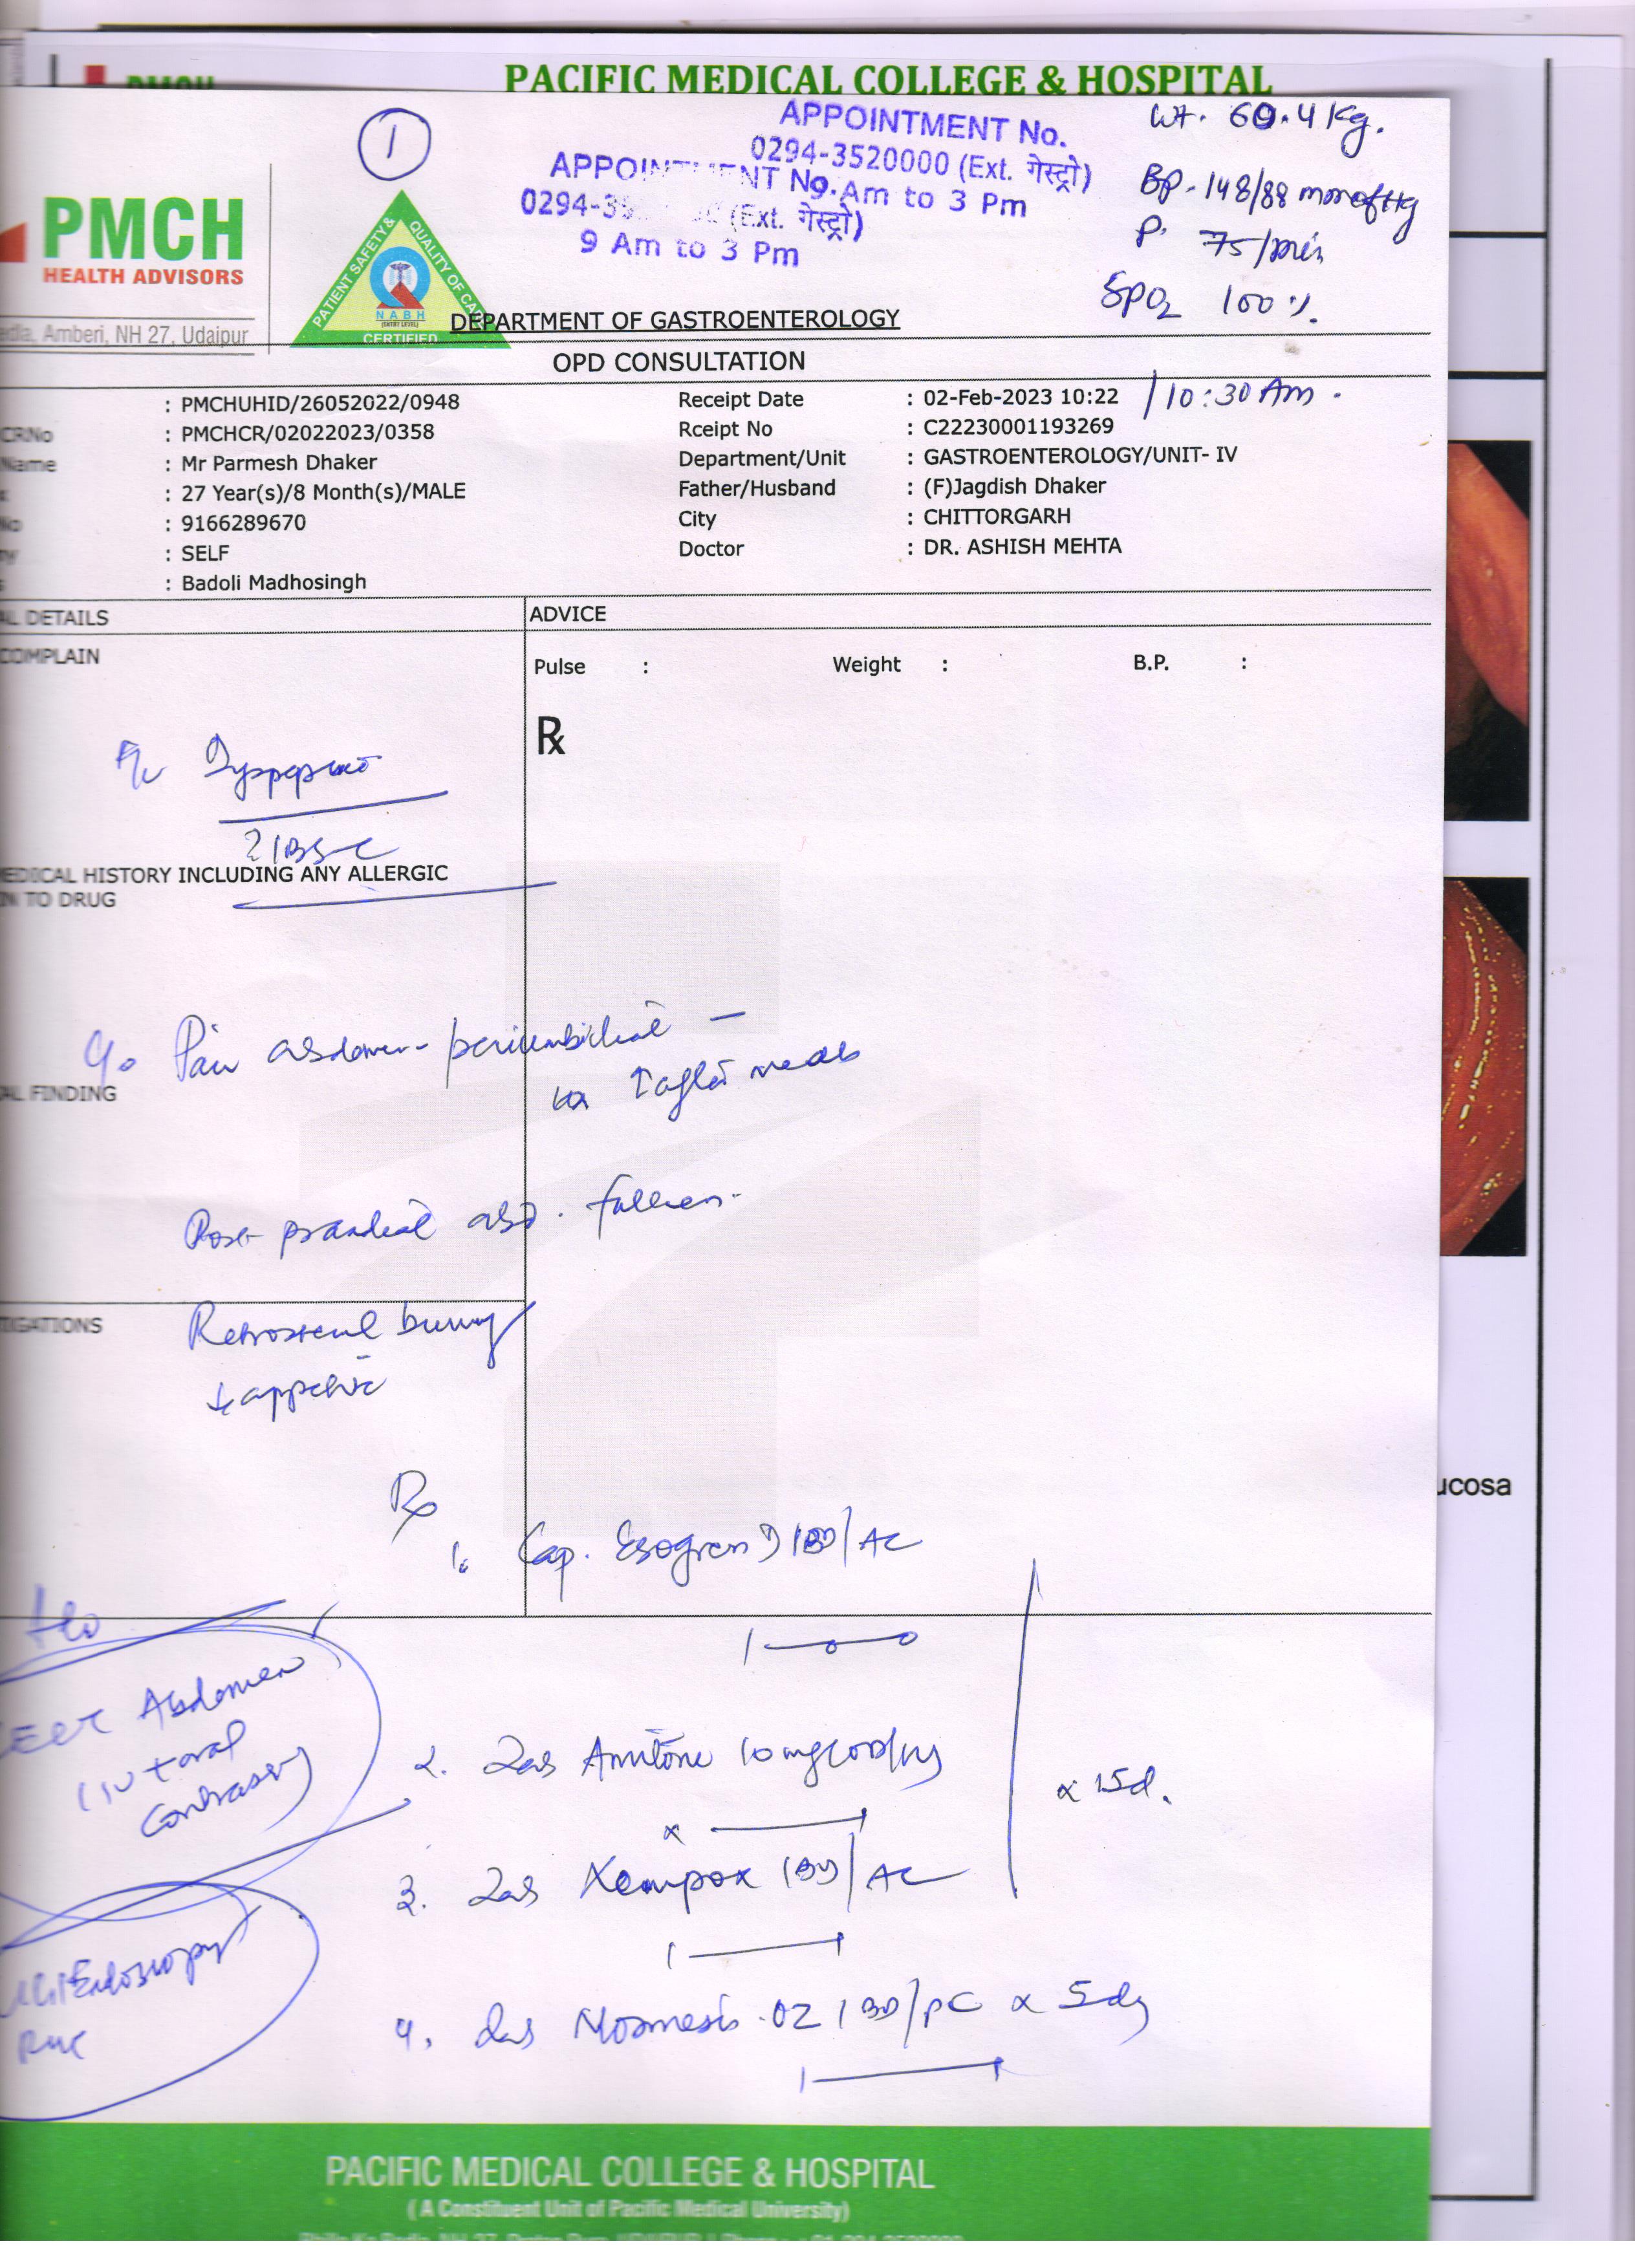 PMCH
PACIFIC MEDICAL COLLEGE & HOSPITAL
1
APPOINTMENT No.
0294-3520000 (Ext. गेस्ट्रो)
9 Am to 3 Pm
APPOINTMENT No.
0294-35 (Ext. गेस्ट्रो)
9 Am to 3 Pm
Wt. 60.4 Kg.
BP. 148/88 mmofHg
P. 75/min
SPO2 100%.
PMCH
HEALTH ADVISORS
Amberi, NH 27, Udaipur
PATIENT SAFETY & QUALITY OF CARE
NABH
(ENTRY LEVEL)
CERTIFIED
DEPARTMENT OF GASTROENTEROLOGY
OPD CONSULTATION
: PMCHUHID/26052022/0948 Receipt Date : 02-Feb-2023 10:22 /10:30 Am.
CRNo : PMCHCR/02022023/0358 Rceipt No : C22230001193269
Name : Mr Parmesh Dhaker Department/Unit : GASTROENTEROLOGY/UNIT- IV
: 27 Year(s)/8 Month(s)/MALE Father/Husband : (F)Jagdish Dhaker
No : 9166289670 City : CHITTORGARH
: SELF Doctor : DR. ASHISH MEHTA
: Badoli Madhosingh
AL DETAILS ADVICE
COMPLAIN
Pulse : Weight : B.P. :
Rx
? IBS-C
EDICAL HISTORY INCLUDING ANY ALLERGIC
N TO DRUG
C/o Pain abdomen - periumbilical -
meals
AL FINDING
Post prandial abd. fullness.
TIGATIONS
Retrosternal burning
↓ appetite
ucosa
Rx
1. Cap. 1BD/AC
1—o—o
CECT Abdomen
(IV + oral
Contrast)
2. Tab 10mg
x 15d.
3. Tab 1BD/AC
Endoscopy
4. Tab OZ 1BD/PC x 5dy
PACIFIC MEDICAL COLLEGE & HOSPITAL
( A Constituent Unit of Pacific Medical University)